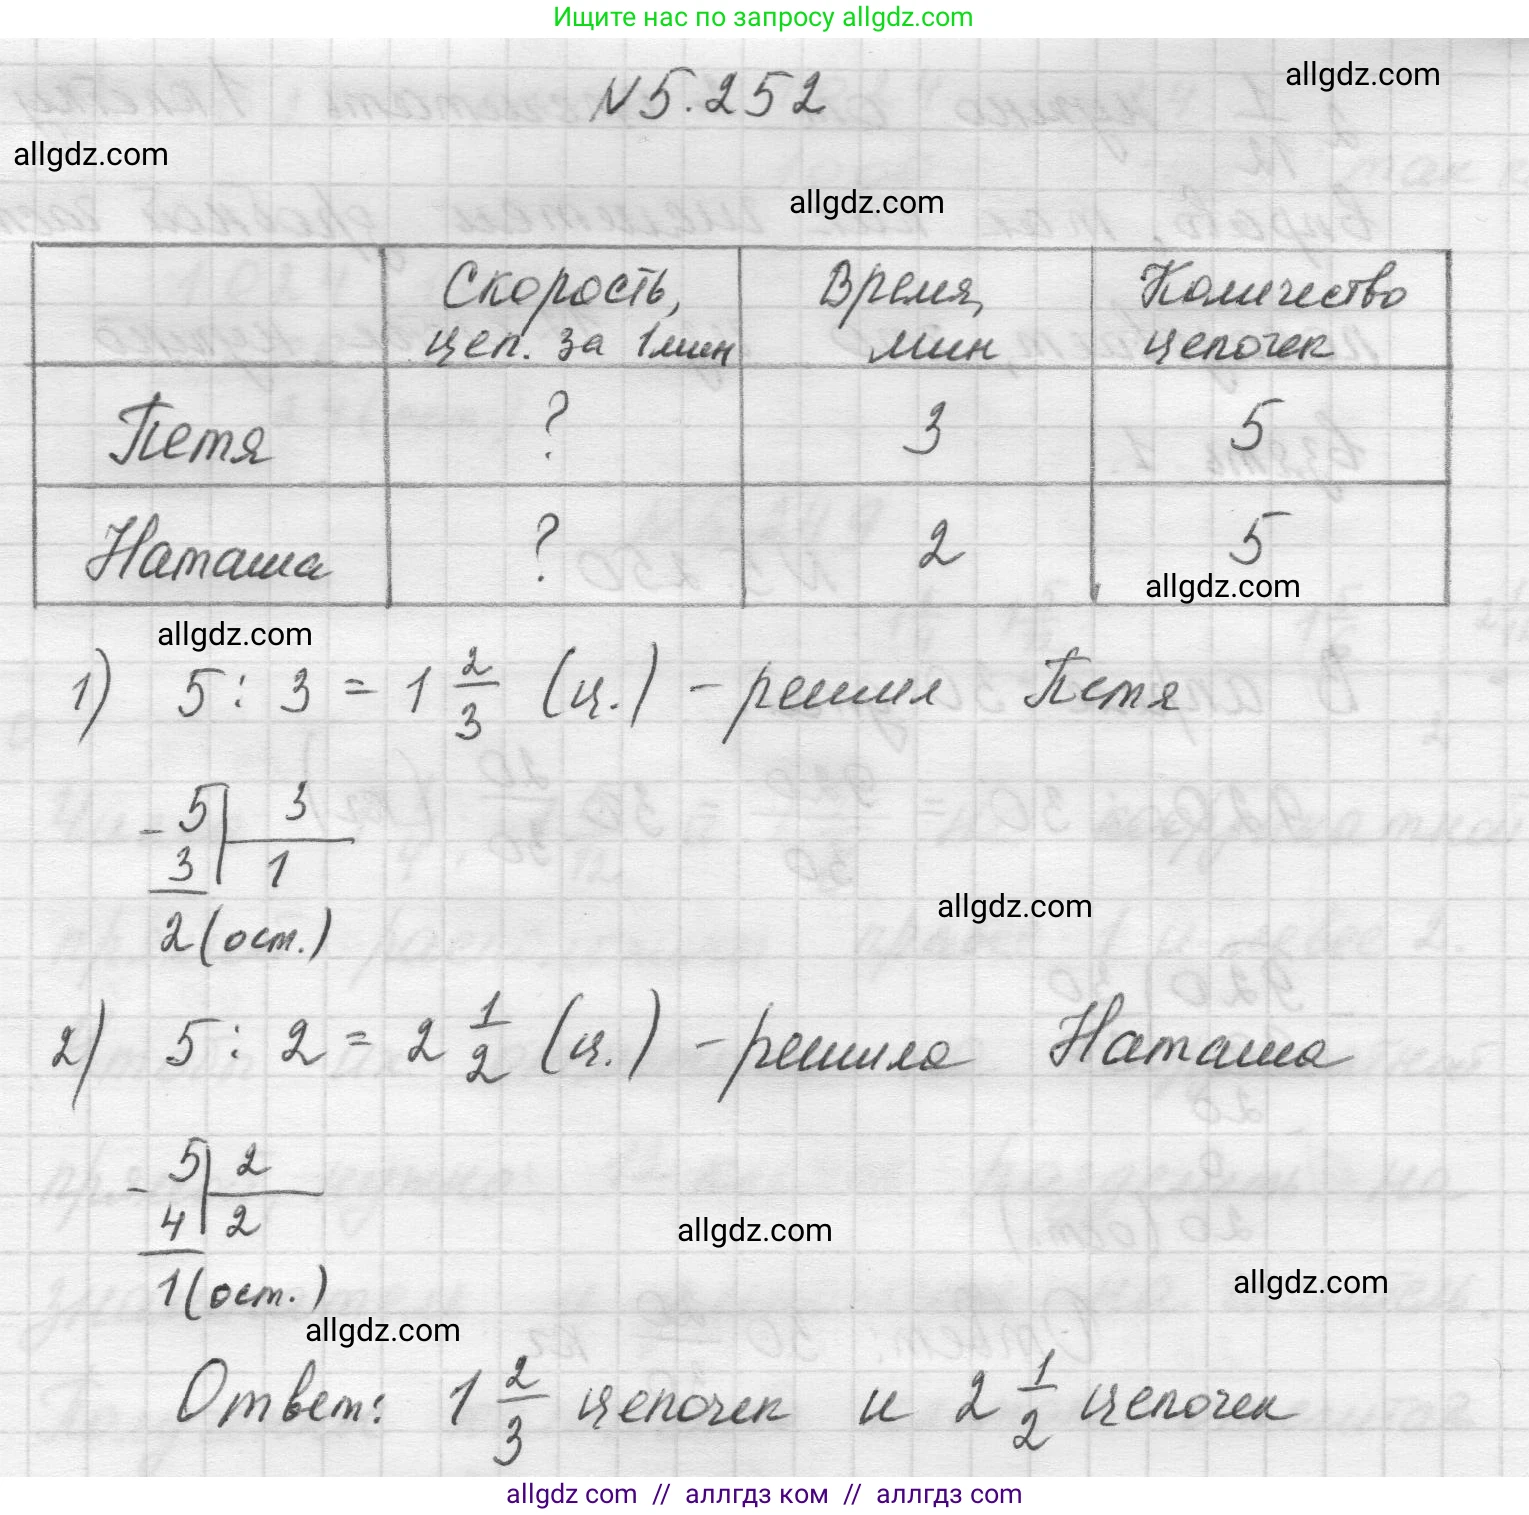 Ищите нас по запросу allgdz.com
allgdz.com
N 5.252
allgdz.com
allgdz.com
Скорость, цеп. за 1 мин
Время, мин
Количество цепочек
Петя ? 3 5
Наташа ? 2 5
allgdz.com
allgdz.com
1) 5 : 3 = 1 2/3 (ц.) – решил Петя
5 | 3
– 3 | 1
2 (ост.)
allgdz.com
2) 5 : 2 = 2 1/2 (ц.) – решила Наташа
5 | 2
– 4 | 2
1 (ост.)
allgdz.com
allgdz.com
allgdz.com
Ответ: 1 2/3 цепочек и 2 1/2 цепочек
allgdz com // аллгдз ком // аллгдз com